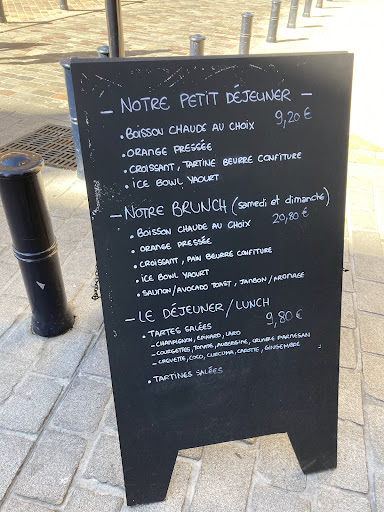 - NOTRE PETIT DÉJEUNER -
• BOISSON CHAUDE AU CHOIX 9,20 €
• ORANGE PRESSÉE
• CROISSANT, TARTINE BEURRE CONFITURE
• ICE BOWL YAOURT
- NOTRE BRUNCH (samedi et dimanche)
• BOISSON CHAUDE AU CHOIX 20,80 €
• ORANGE PRESSÉE
• CROISSANT, PAIN BEURRE CONFITURE
• ICE BOWL YAOURT
• SAUMON/AVOCADO TOAST, JAMBON/FROMAGE
- LE DÉJEUNER/LUNCH
• TARTES SALÉES 9,80 €
- CHAMPIGNON, EPINARD, LARD
- COURGETTES, TOMATE, AUBERGINE, CRUMBLE PARMESAN
- CAROTTE, COCO, CURCUMA, GINGEMBRE
• TARTINES SALÉES